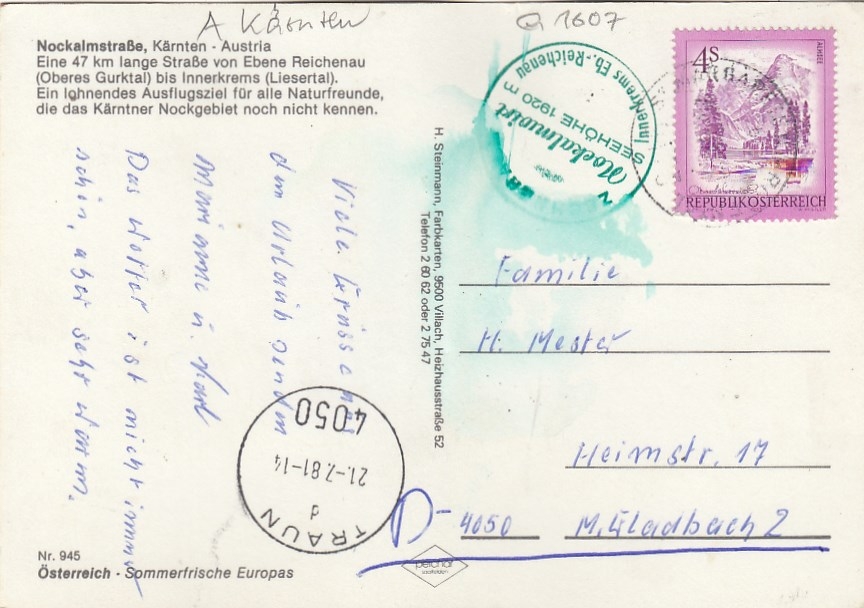 A Kärnten
Q 1607
Nockalmstraße, Kärnten - Austria
Eine 47 km lange Straße von Ebene Reichenau
(Oberes Gurktal) bis Innerkrems (Liesertal).
Ein lohnendes Ausflugsziel für alle Naturfreunde,
die das Kärntner Nockgebiet noch nicht kennen.
Innerkrems Eb.-Reichenau
SEEHÖHE 1920 m
Nockalmwirt
4S
ALMSEE
Oberösterreich
REPUBLIK ÖSTERREICH
Viele Grüsse aus
dem Urlaub senden
Marianne u. Karl
Das Wetter ist nicht immer
schön, aber sehr warm.
H. Steinmann, Farbkarten, 9500 Villach, Heizhausstraße 52
Telefon 2 60 62 oder 2 75 47
Familie
H. Mester
Heimstr. 17
D- 4050 M. Gladbach 2
4050
21.-7.81-14
d
TRAUN
Nr. 945
Österreich - Sommerfrische Europas